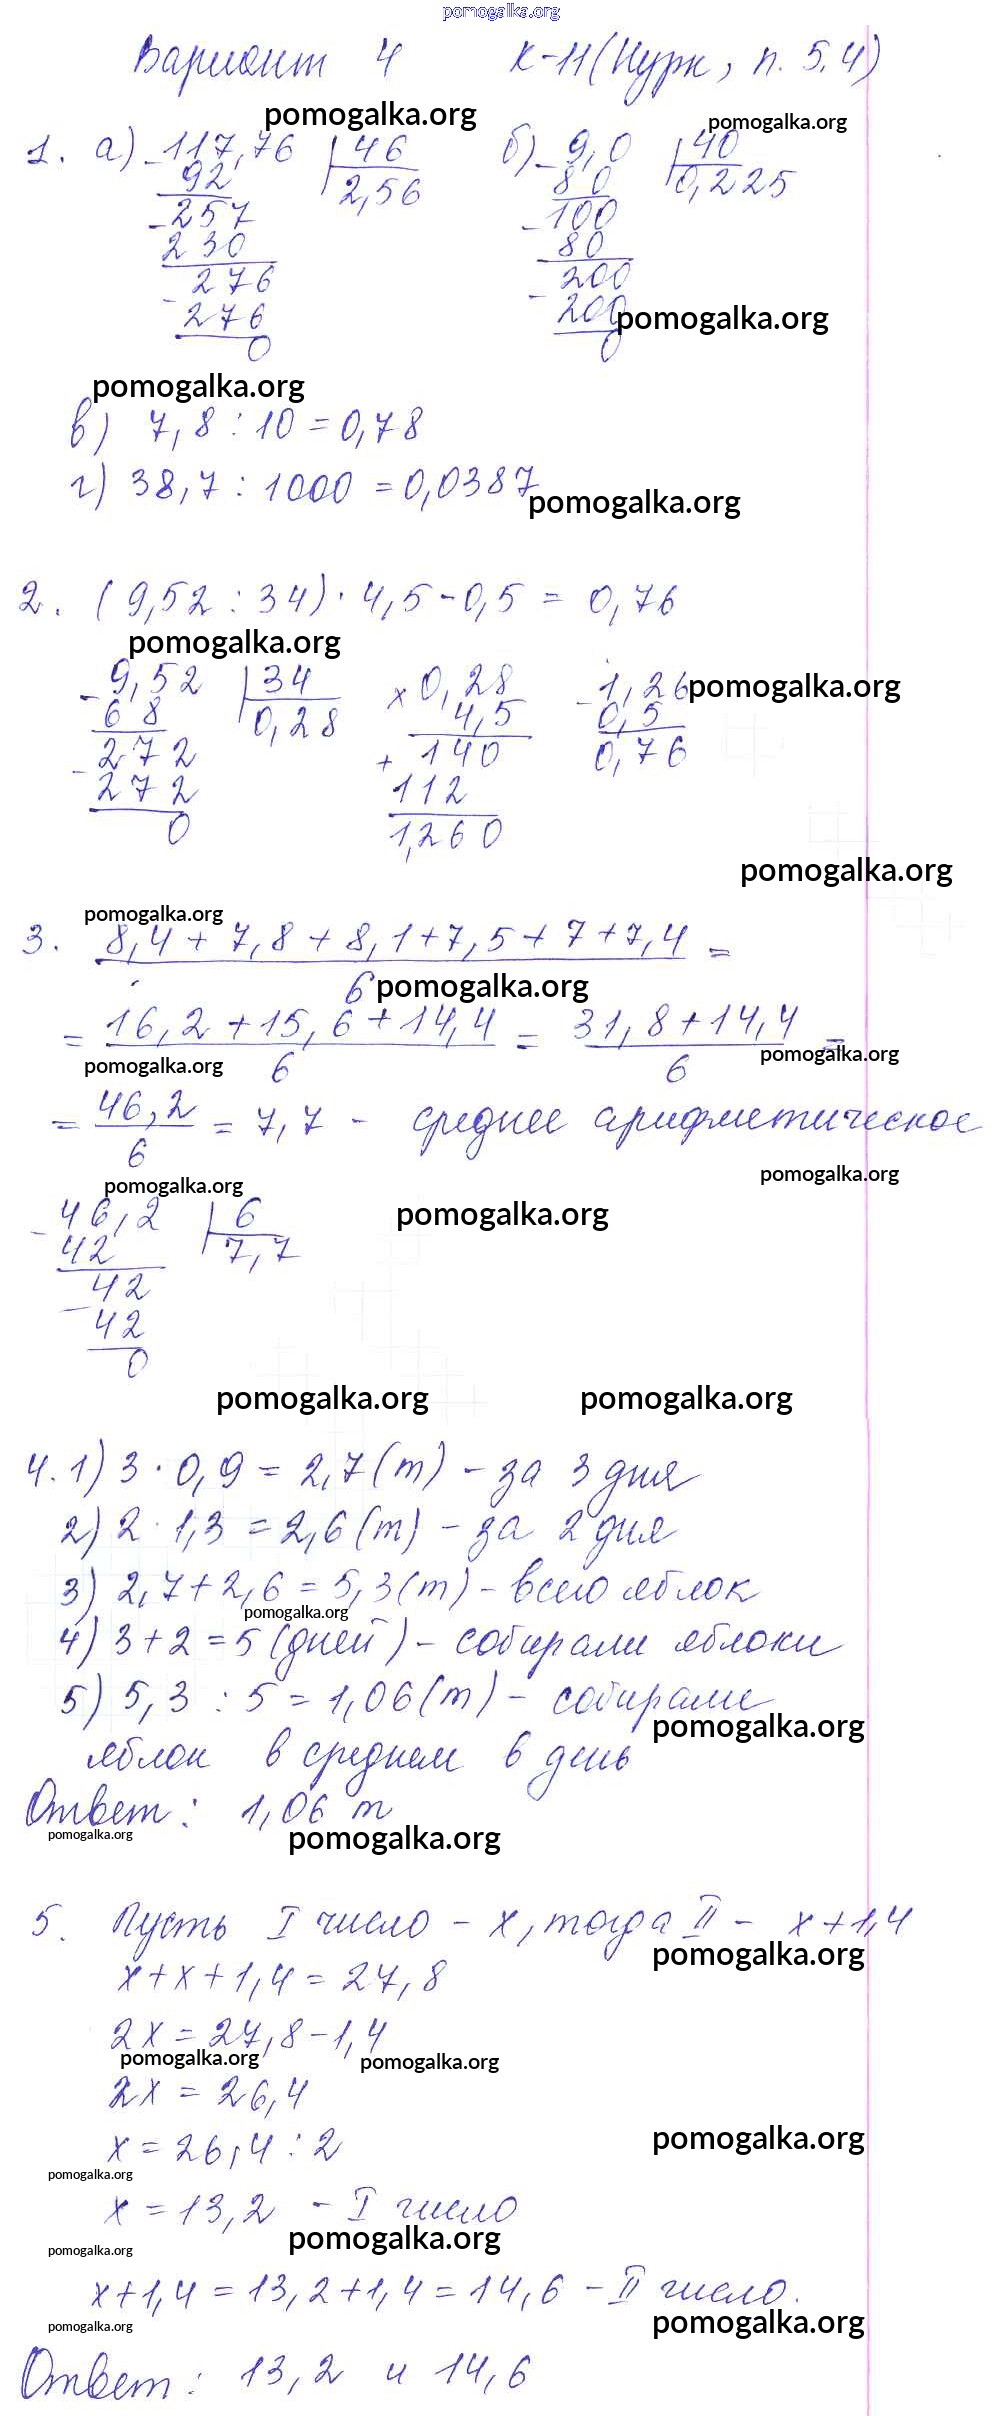 pomogalka.org
Вариант 4 К-11 (Нурк, п. 5.4)
pomogalka.org
pomogalka.org
1. а) - 117,76 46
92 2,56
- 257
230
- 276
- 276
0
б) - 9,0 40
80 0,225
- 100
80
- 200
200
0
pomogalka.org
pomogalka.org
в) 7,8 : 10 = 0,78
г) 38,7 : 1000 = 0,0387
pomogalka.org
2. (9,52 : 34) · 4,5 - 0,5 = 0,76
pomogalka.org
- 9,52 34
68 0,28
- 272
272
0
× 0,28
4,5
+ 140
112
1,260
- 1,26
0,5
0,76
pomogalka.org
pomogalka.org
pomogalka.org
3. 8,4 + 7,8 + 8,1 + 7,5 + 7 + 7,4 =
6
pomogalka.org
= 16,2 + 15,6 + 14,4 = 31,8 + 14,4 =
6 6
pomogalka.org
pomogalka.org
= 46,2 = 7,7 - среднее арифметическое
6
pomogalka.org
pomogalka.org
pomogalka.org
- 46,2 6
42 7,7
- 42
42
0
pomogalka.org pomogalka.org
4. 1) 3 · 0,9 = 2,7 (т) - за 3 дня
2) 2 · 1,3 = 2,6 (т) - за 2 дня
3) 2,7 + 2,6 = 5,3 (т) - всего яблок
pomogalka.org
4) 3 + 2 = 5 (дней) - собирали яблоки
5) 5,3 : 5 = 1,06 (т) - собирали
pomogalka.org
яблок в среднем в день
Ответ: 1,06 т
pomogalka.org
pomogalka.org
5. Пусть I число - x, тогда II - x + 1,4
pomogalka.org
x + x + 1,4 = 27,8
2x = 27,8 - 1,4
pomogalka.org pomogalka.org
2x = 26,4
pomogalka.org
x = 26,4 : 2
pomogalka.org
x = 13,2 - I число
pomogalka.org
pomogalka.org
x + 1,4 = 13,2 + 1,4 = 14,6 - II число.
pomogalka.org
pomogalka.org
Ответ: 13,2 и 14,6